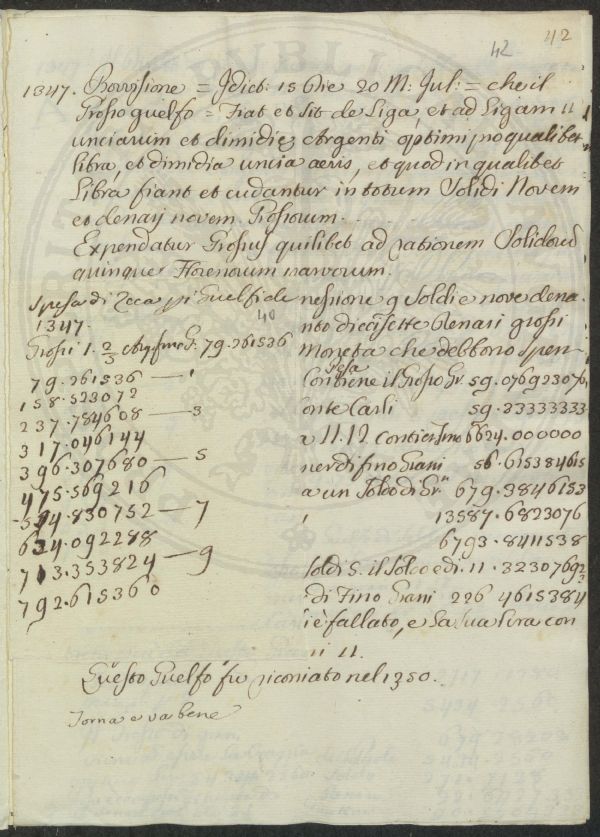 42
42
1347. Provisione = Idict: 15 Die 20 M: Jul: = che il
Grosso guelfo = Fiat et sit de Liga, et ad Ligam 11
unciarum et dimidie Argenti optimi pro qualibet
libra, et dimidia uncia aeris, et quod in qualibet
Libra fiant et cudantur in totum Solidi Novem
et denarij novem Grossorum.
Expendatur Grossus quilibet ad rationem Solidorum
quinque Florenorum parvorum.
Spesa di Zecca pi Guelfi de
1347. 40
Grossi 1. 2/3 79.261536
79.261536 — 1
158.523072
237.784608 — 3
317.046144
396.307680 — 5
475.569216
554.830752 — 7
634.092288
713.353824 — 9
792.615360
nessione 9 Soldi e nove dena
Denari grossi
Moneta che debbono spen-
Contiene il Grosso Gr. 59.076923076
59.33333333
a 11.12 6624.000000
di fino Grani 56.615384615
a un Soldo di Gr. 679.3846153
13587.6823076
6793.8411538
Soldi 5. il Soldo e di 11.32307692
di Fino Grani 226 4615384
è fallato, e la sua Lira con
11 11.
Questo Guelfo fu riconiato nel 1350.
Torna e va bene